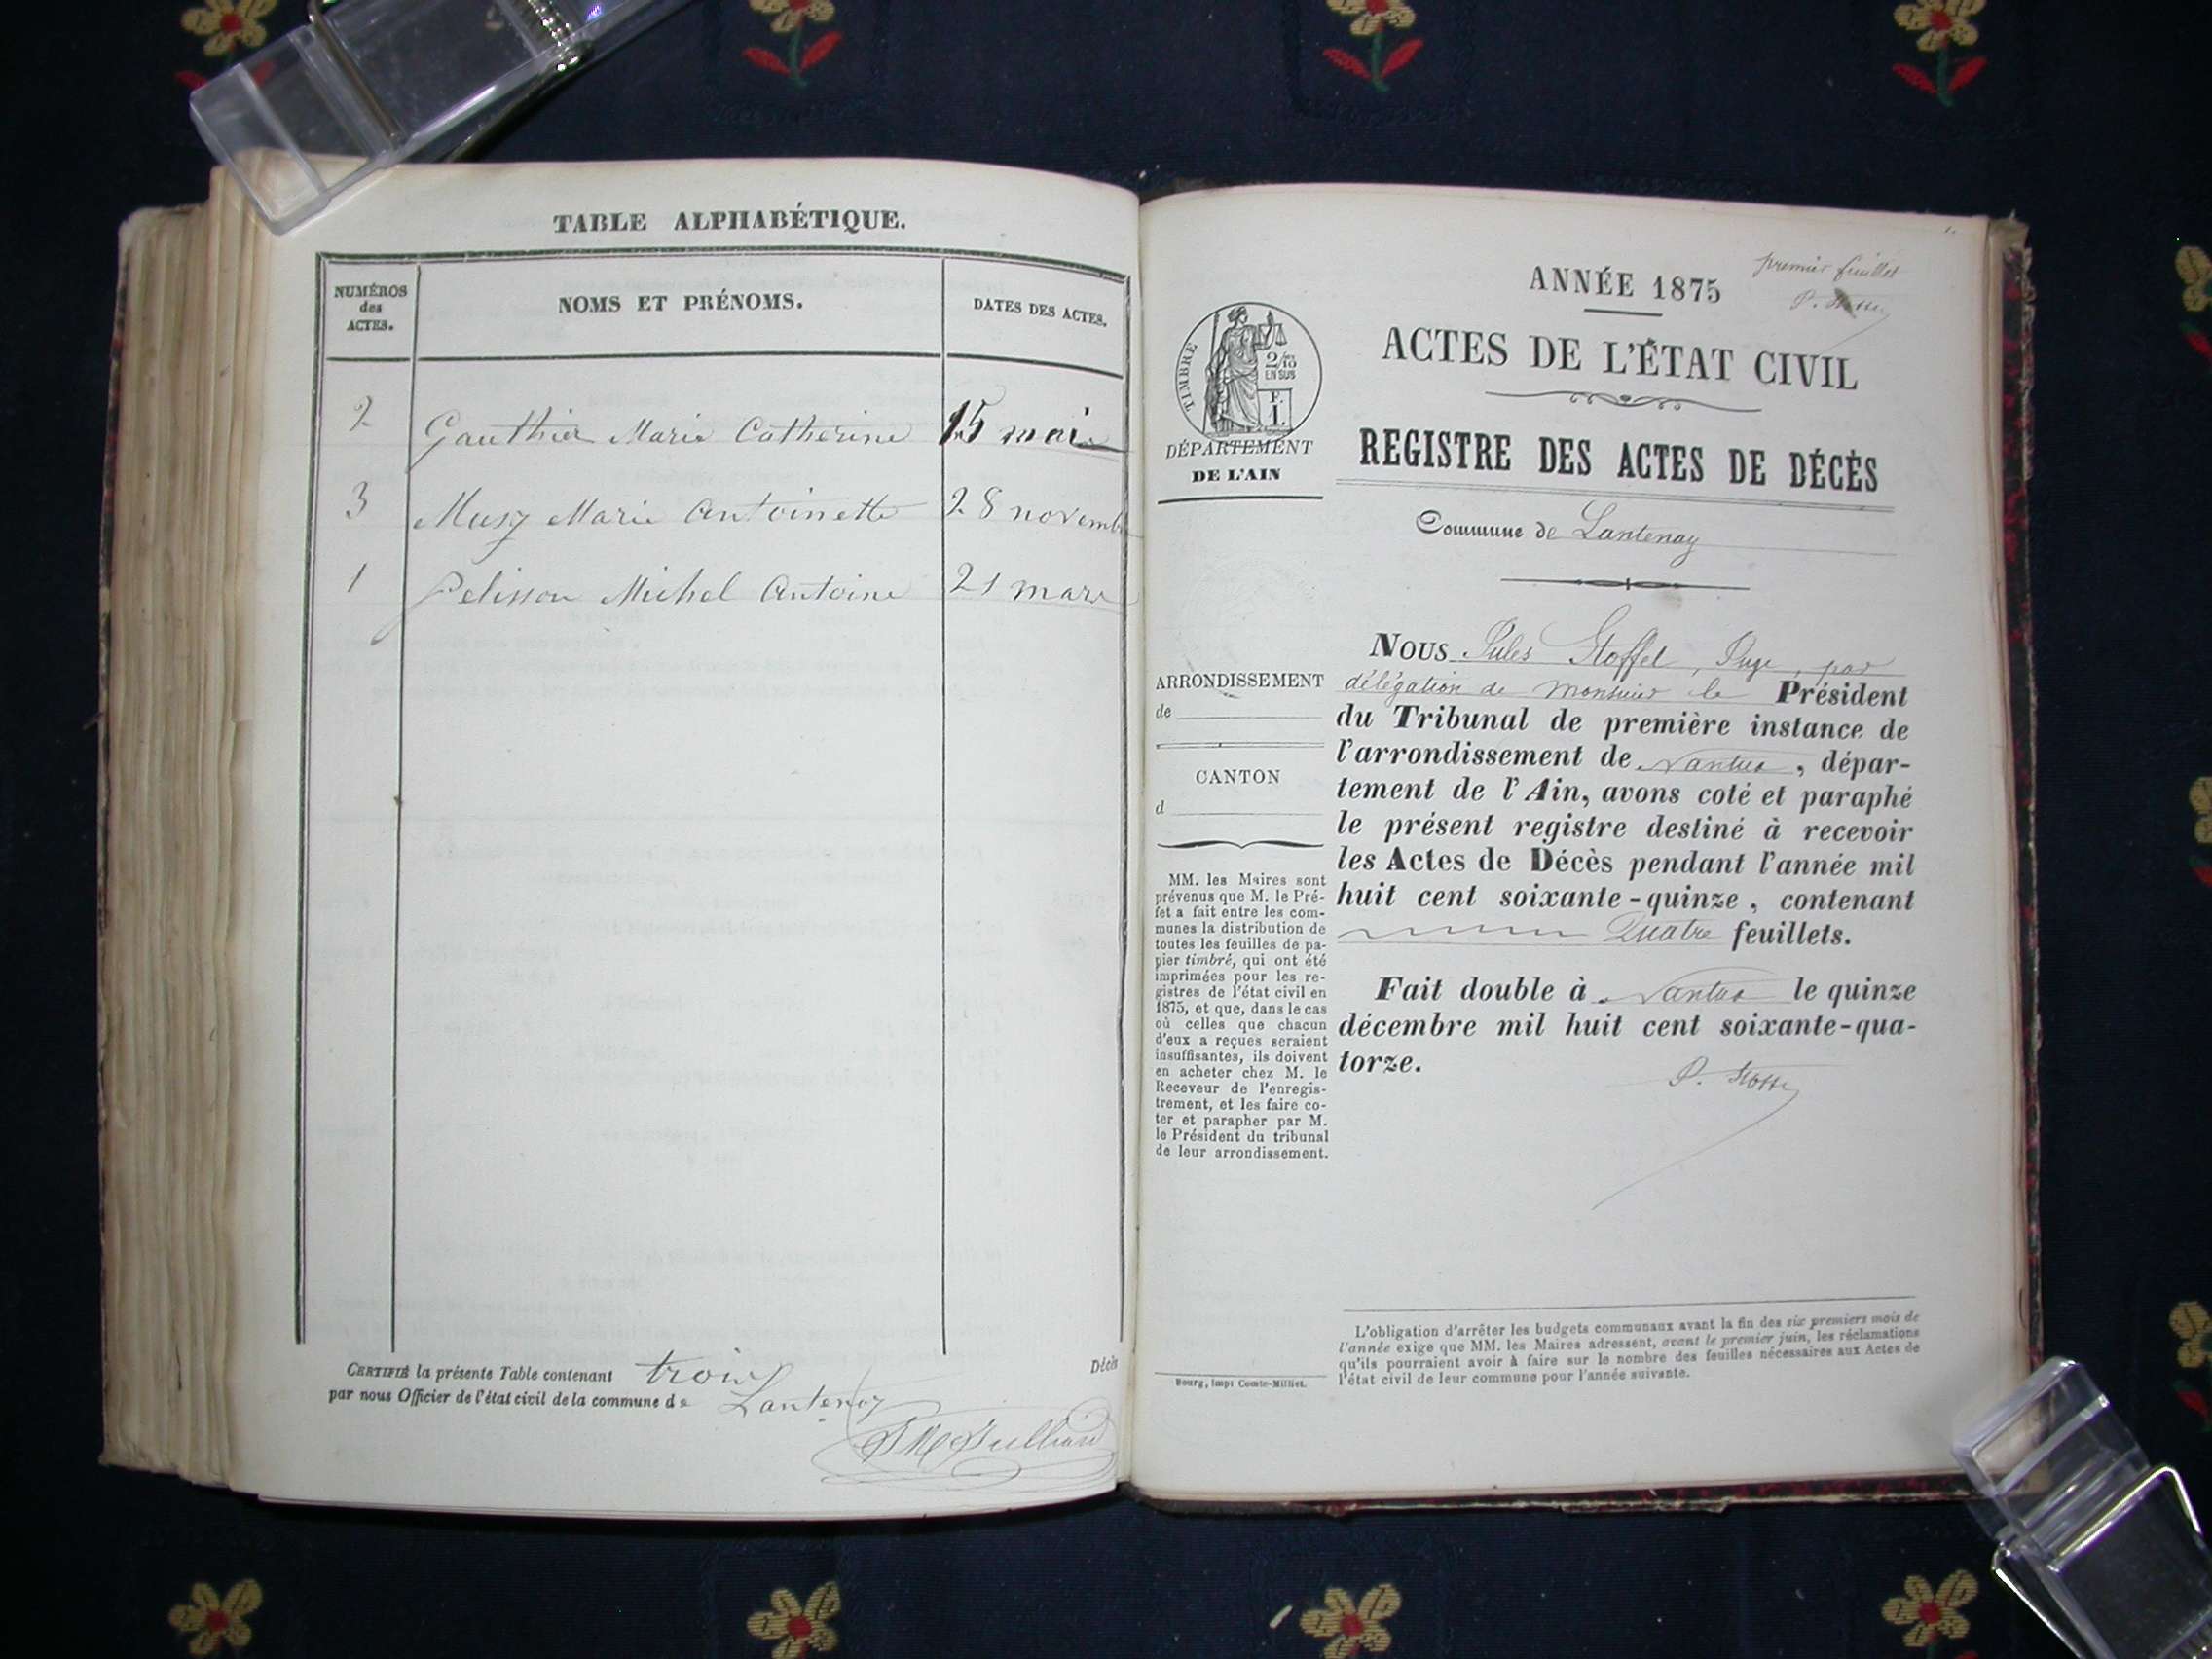 TABLE ALPHABÉTIQUE.
NUMÉROS
des
ACTES.
NOMS ET PRÉNOMS.
DATES DES ACTES.
2 Gauthier Marie Catherine 15 mai
3 Musy Marie Antoinette 28 novembre
1 Pelisson Michel Antoine 21 mars
CERTIFIÉ la présente Table contenant trois
par nous Officier de l'état civil de la commune de Lantenay
Décès
premier feuillet
ANNÉE 1875
ACTES DE L'ÉTAT CIVIL
REGISTRE DES ACTES DE DÉCÈS
Commune de Lantenay
TIMBRE
2/10
EN SUS
F.
1.
DÉPARTEMENT
DE L'AIN
ARRONDISSEMENT
de
CANTON
d
MM. les Maires sont
prévenus que M. le Pré-
fet a fait entre les com-
munes la distribution de
toutes les feuilles de pa-
pier timbré, qui ont été
imprimées pour les re-
gistres de l'état civil en
1875, et que, dans le cas
où celles que chacun
d'eux a reçues seraient
insuffisantes, ils doivent
en acheter chez M. le
Receveur de l'enregis-
trement, et les faire co-
ter et parapher par M.
le Président du tribunal
de leur arrondissement.
Bourg, Impr Comte-Milliet.
NOUS Jules Stoffel, Juge, par
délégation de Monsieur le Président
du Tribunal de première instance de
l'arrondissement de Nantua, dépar-
tement de l'Ain, avons coté et paraphé
le présent registre destiné à recevoir
les Actes de Décès pendant l'année mil
huit cent soixante-quinze, contenant
Quatre feuillets.
Fait double à Nantua le quinze
décembre mil huit cent soixante-qua-
torze.
L'obligation d'arrêter les budgets communaux avant la fin des six premiers mois de
l'année exige que MM. les Maires adressent, avant le premier juin, les réclamations
qu'ils pourraient avoir à faire sur le nombre des feuilles nécessaires aux Actes de
l'état civil de leur commune pour l'année suivante.